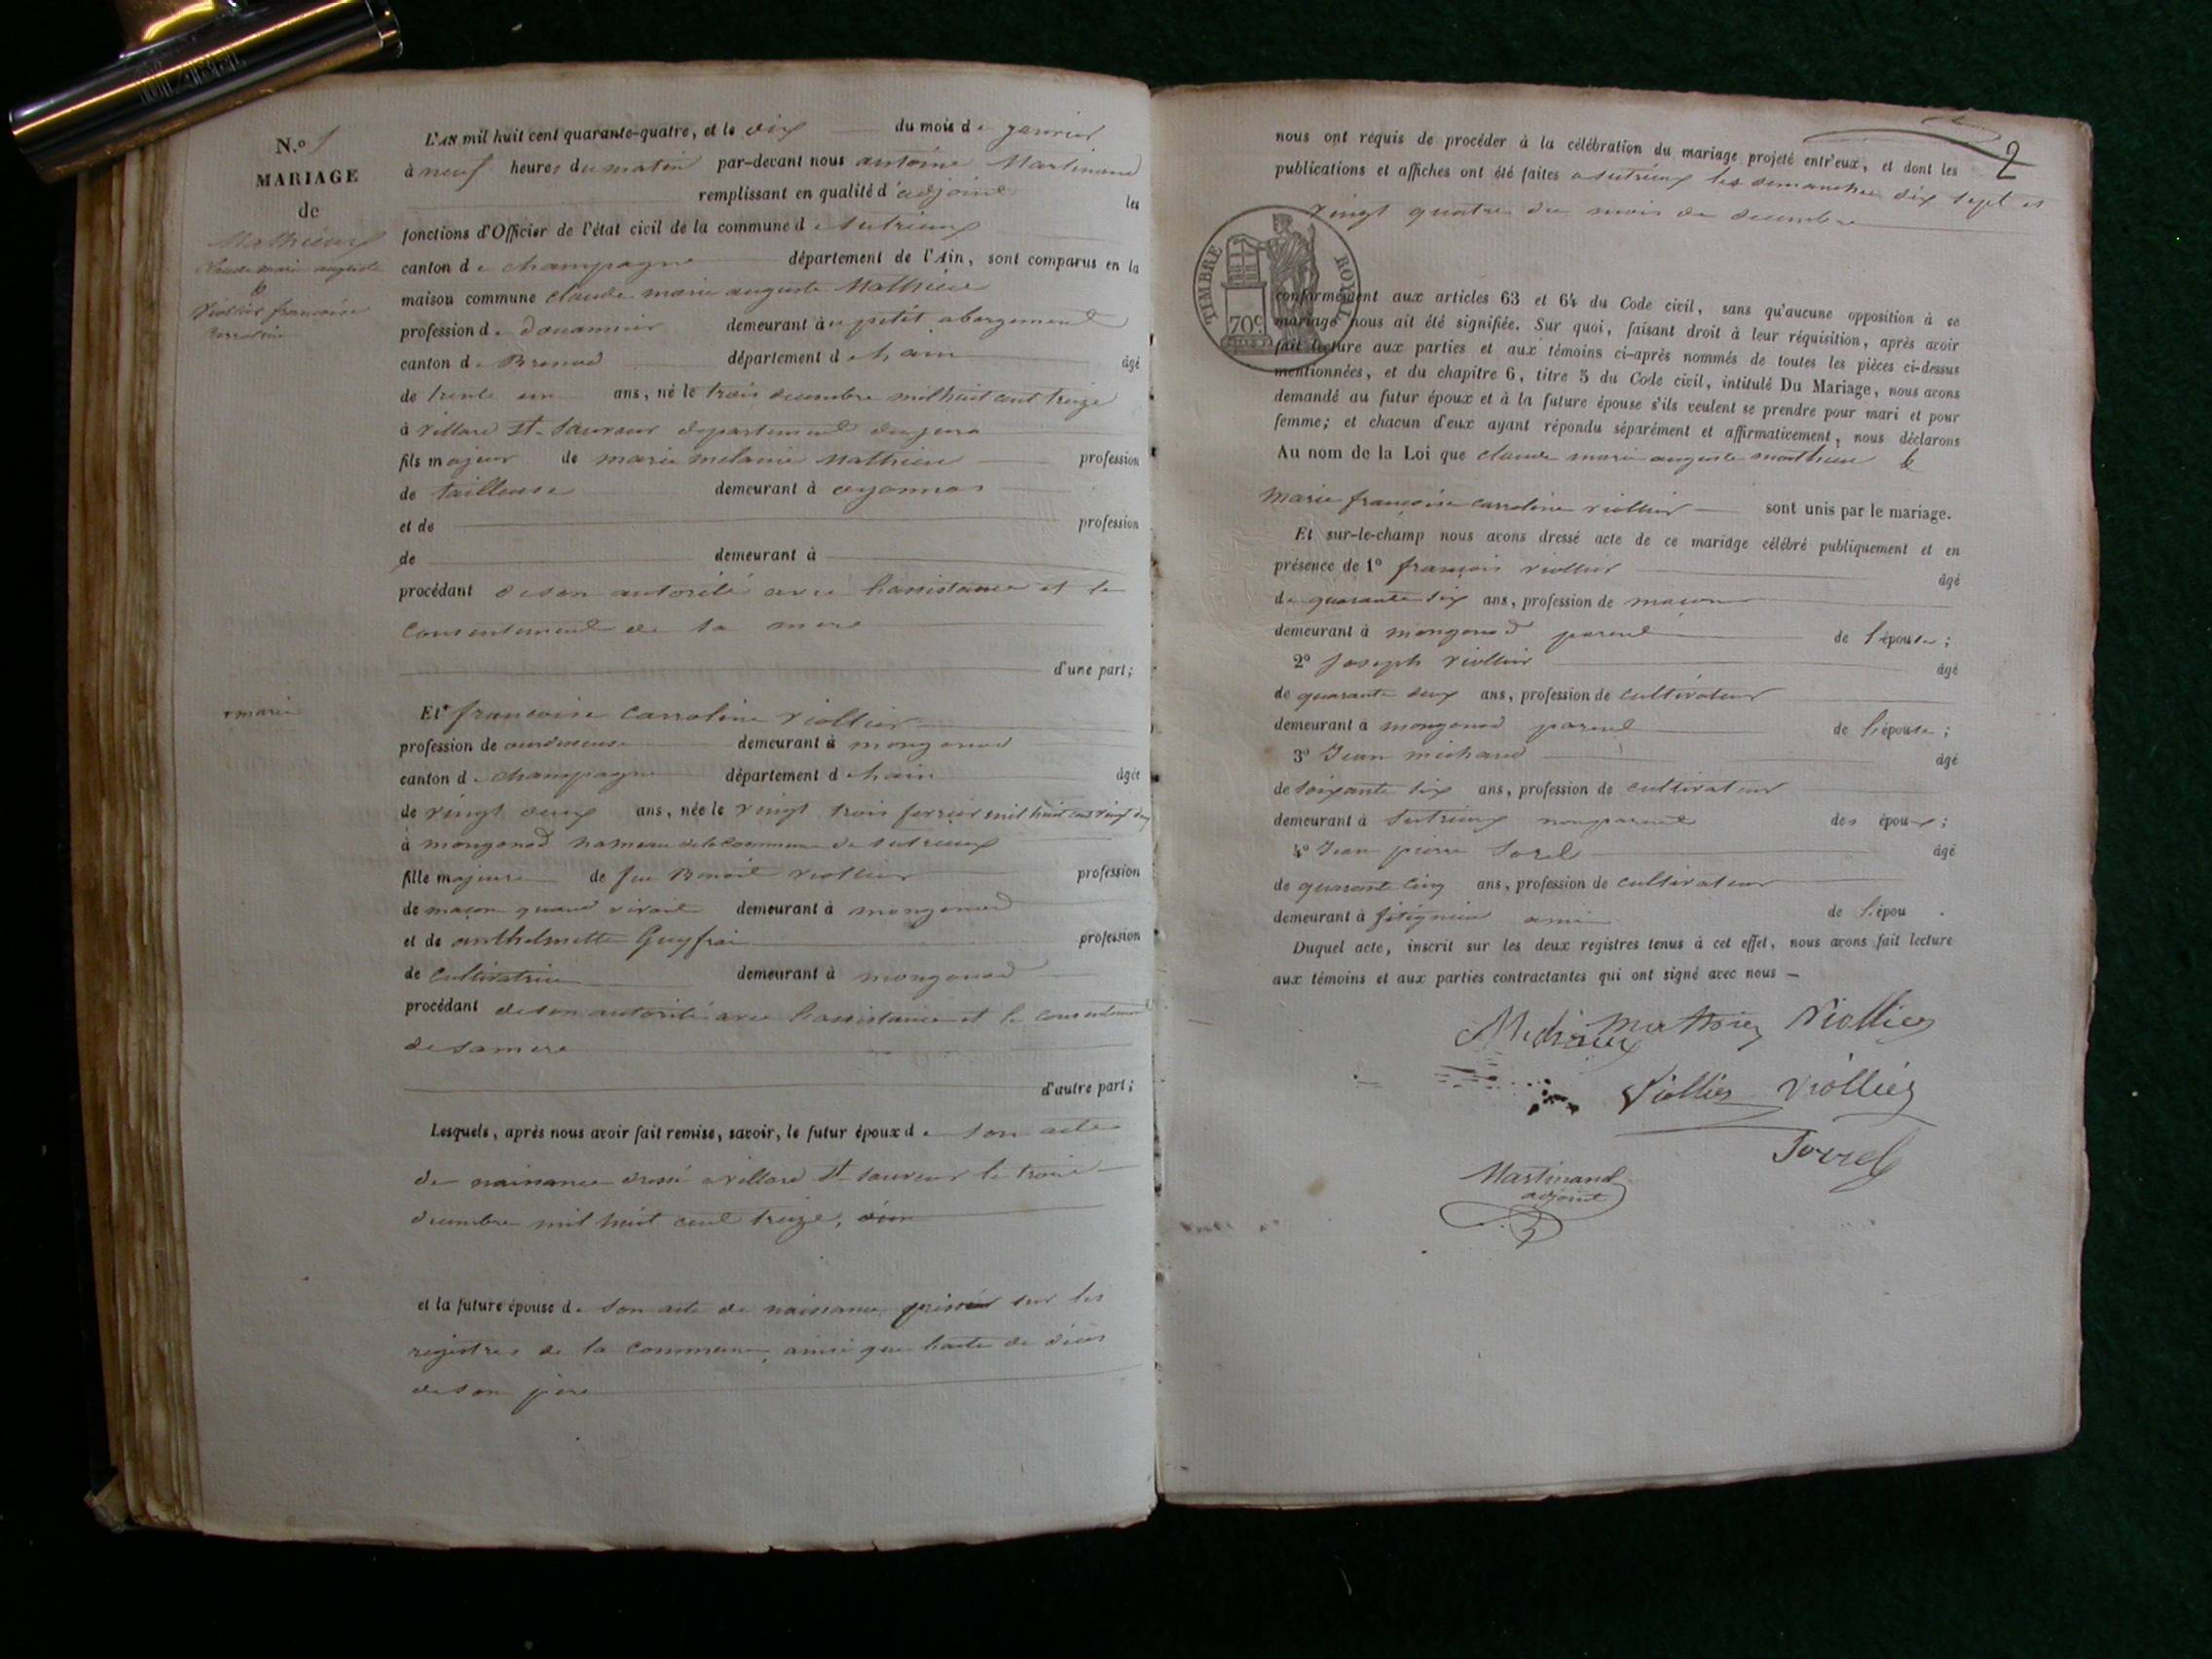 N.o 1
MARIAGE
de
Mathieux
Claude marie auguste
&
Viollier francoise
Carroline
L'AN mil huit cent quarante-quatre, et le dix du mois de janvier
à neuf heures du matin par-devant nous antoine Martinand
remplissant en qualité d'adjoint les
fonctions d'Officier de l'état civil de la commune de Sutrieux
canton de champagne département de l'Ain, sont comparus en la
maison commune claude marie auguste Mathieu
profession de Douannier demeurant au petit abergement
canton de Brenod département de hain âgé
de trente un ans, né le trois decembre mil huit cent treize
à villard St. Sauveur departement du jura
fils majeur de marie melanie Mathieu profession
de tailleuse demeurant à oyonnas
et de profession
de demeurant à
procédant de son autorité avec l'assistance et le
consentement de sa mere
d'une part;
+ marie
Et + francoise Carroline Viollier
profession de demeurant à mongonod
canton de champagne département de hain âgée
de vingt deux ans, née le vingt trois ferrier mil huit cent vingt
à mongonod hameau de la Commune de Sutrieux
fille majeure de feu Benoit Viollier profession
de maçon quand vivait demeurant à mongonod
et de anthelmette Guyfrai profession
de Cultivatrice demeurant à mongonod
procédant de son autorité avec l'assistance et le consentement
de sa mere
d'autre part;
Lesquels, après nous avoir fait remise, savoir, le futur époux de son acte
de naissance dressé a villard St sauveur le trois
decembre mil huit cent treize,
et la future épouse de son acte de naissance sur les
registres de la commune, ainsi que l'acte de décès
de son père
2
nous ont requis de procéder à la célébration du mariage projeté entr'eux, et dont les
publications et affiches ont été faites a Sutrieux les dimanches dix sept et
vingt quatre du mois de decembre
TIMBRE ROYAL
70c
conformément aux articles 63 et 64 du Code civil, sans qu'aucune opposition à ce
mariage nous ait été signifiée. Sur quoi, faisant droit à leur réquisition, après avoir
fait lecture aux parties et aux témoins ci-après nommés de toutes les pièces ci-dessus
mentionnées, et du chapitre 6, titre 5 du Code civil, intitulé Du Mariage, nous avons
demandé au futur époux et à la future épouse s'ils veulent se prendre pour mari et pour
femme; et chacun d'eux ayant répondu séparément et affirmativement, nous déclarons
Au nom de la Loi que claude marie auguste mathieu &
marie françoise carroline viollier sont unis par le mariage.
Et sur-le-champ nous avons dressé acte de ce mariage célébré publiquement et en
présence de 1° françois viollier âgé
de quarante six ans, profession de maçon
demeurant à mongonod parent de l'épouse;
2° joseph Viollier âgé
de quarante deux ans, profession de cultivateur
demeurant à mongonod parent de l'épouse;
3° Jean michaud âgé
de soixante six ans, profession de cultivateur
demeurant à Sutrieux non parent des époux;
4° Jean pierre Sorel âgé
de quarante cinq ans, profession de cultivateur
demeurant à fitignieu ami de l'épou .
Duquel acte, inscrit sur les deux registres tenus à cet effet, nous avons fait lecture
aux témoins et aux parties contractantes qui ont signé avec nous —
Mathieu Viollier
Viollier Viollier
Sorrel
Martinand
adjoint